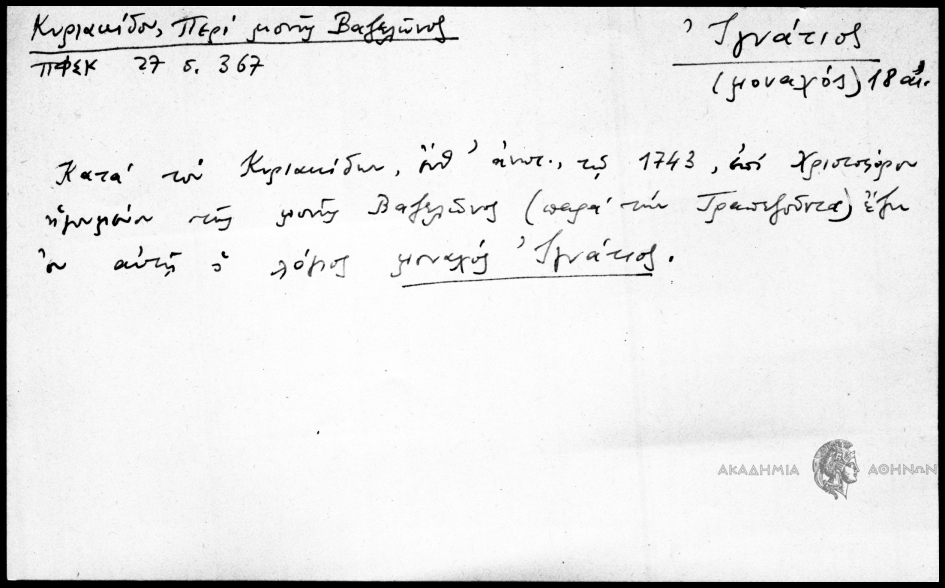 Κυριακίδου, Περί μονῆς Βαζελῶνος
ΠΦΣΚ 27 σ. 367
Ἰγνάτιος
(μοναχός) 18 αἰ.
Κατά τόν Κυριακίδην, ἔνθ' ἀνωτ., τῷ 1743, ἐπί Χριστοφόρου
ἡγουμένου τῆς μονῆς Βαζελῶνος (παρά τήν Τραπεζοῦντα) ἔζη
ἐν αὐτῇ ὁ λόγιος μοναχός Ἰγνάτιος.
ΑΚΑΔΗΜΙΑ ΑΘΗΝΩΝ